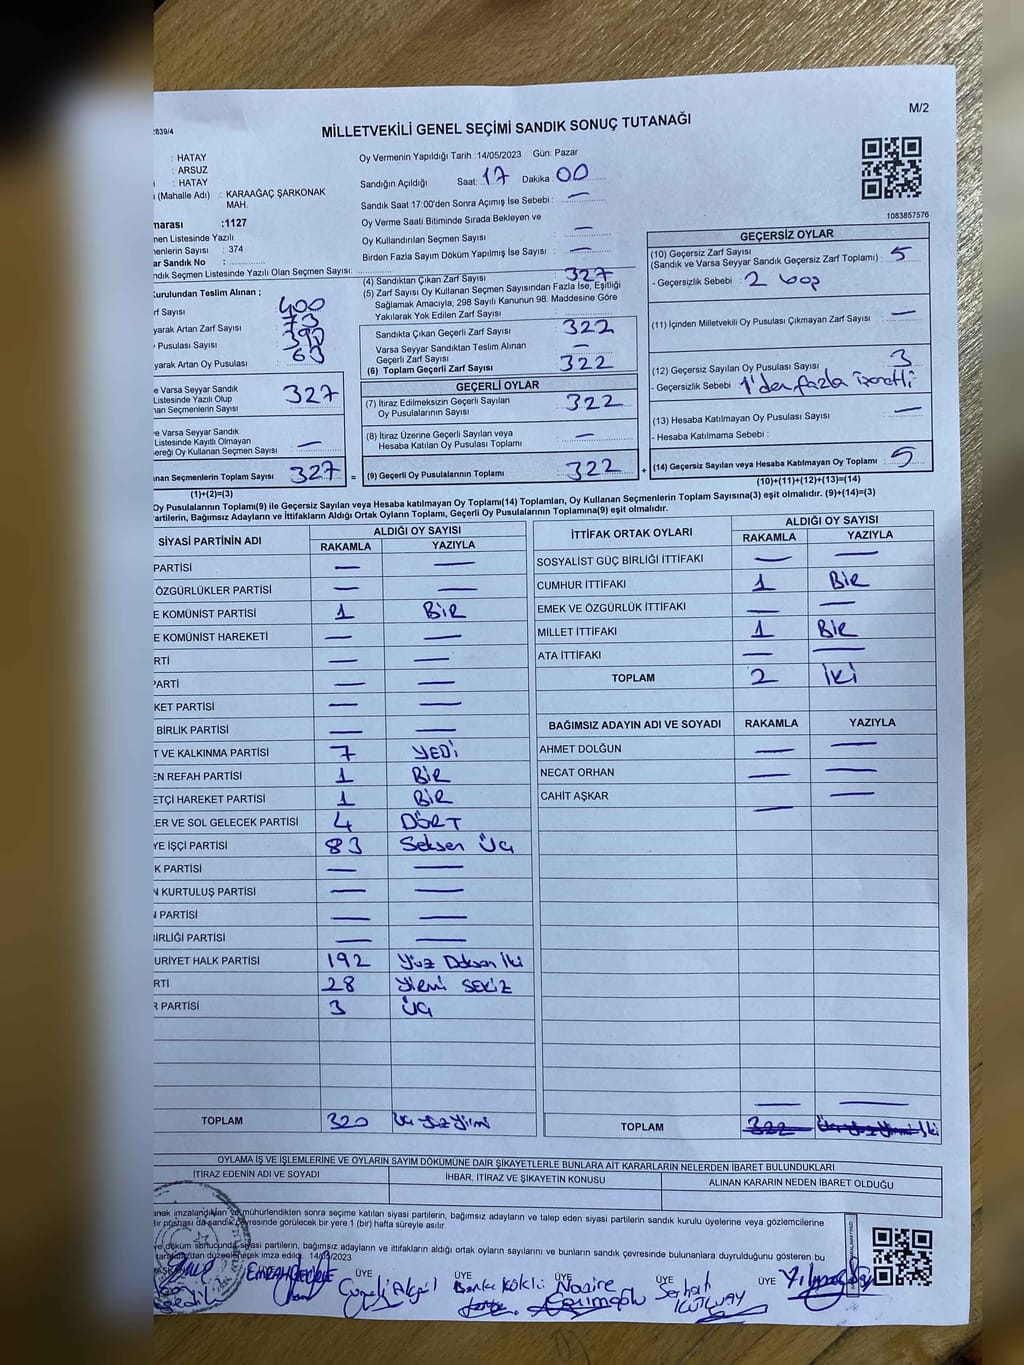 M/2
2839/4
MİLLETVEKİLİ GENEL SEÇİMİ SANDIK SONUÇ TUTANAĞI
: HATAY
: ARSUZ
: HATAY
(Mahalle Adı) : KARAAĞAÇ ŞARKONAK
MAH.
marası :1127
men Listesinde Yazılı
menlerin Sayısı : 374
ar Sandık No :
ndık Seçmen Listesinde Yazılı Olan Seçmen Sayısı:
Oy Vermenin Yapıldığı Tarih :14/05/2023 Gün: Pazar
Sandığın Açıldığı Saat: 17 Dakika : 00
Sandık Saat 17:00'den Sonra Açımış İse Sebebi : —
Oy Verme Saati Bitiminde Sırada Bekleyen ve
Oy Kullandırılan Seçmen Sayısı : —
Birden Fazla Sayım Döküm Yapılmış İse Sayısı : —
1083857576
Kurulundan Teslim Alınan ;
rf Sayısı : 400
yarak Artan Zarf Sayısı : 73
Pusulası Sayısı : 390
yarak Artan Oy Pusulası : 63
e Varsa Seyyar Sandık
Listesinde Yazılı Olup
nan Seçmenlerin Sayısı 327
e Varsa Seyyar Sandık
Listesinde Kayıtlı Olmayan
ereği Oy Kullanan Seçmen Sayısı : —
anan Seçmenlerin Toplam Sayısı : 327 =
(1)+(2)=(3)
(4) Sandıktan Çıkan Zarf Sayısı : 327
(5) Zarf Sayısı Oy Kullanan Seçmen Sayısından Fazla İse, Eşitliği
Sağlamak Amacıyla; 298 Sayılı Kanunun 98. Maddesine Göre
Yakılarak Yok Edilen Zarf Sayısı :
Sandıkta Çıkan Geçerli Zarf Sayısı : 322
Varsa Seyyar Sandıktan Teslim Alınan
Geçerli Zarf Sayısı :
(6) Toplam Geçerli Zarf Sayısı : 322
GEÇERLİ OYLAR
(7) İtiraz Edilmeksizin Geçerli Sayılan
Oy Pusulalarının Sayısı : 322
(8) İtiraz Üzerine Geçerli Sayılan veya
Hesaba Katılan Oy Pusulası Toplamı : —
(9) Geçerli Oy Pusulalarının Toplamı : 322 +
GEÇERSİZ OYLAR
(10) Geçersiz Zarf Sayısı
(Sandık ve Varsa Seyyar Sandık Geçersiz Zarf Toplamı) : 5
- Geçersizlik Sebebi : 2 boş
(11) İçinden Milletvekili Oy Pusulası Çıkmayan Zarf Sayısı : —
(12) Geçersiz Sayılan Oy Pusulası Sayısı : 3
- Geçersizlik Sebebi : 1'den fazla işaretli
(13) Hesaba Katılmayan Oy Pusulası Sayısı : —
- Hesaba Katılmama Sebebi :
(14) Geçersiz Sayılan veya Hesaba Katılmayan Oy Toplamı : 5
(10)+(11)+(12)+(13)=(14)
Oy Pusulalarının Toplamı(9) ile Geçersiz Sayılan veya Hesaba katılmayan Oy Toplamı(14) Toplamları, Oy Kullanan Seçmenlerin Toplam Sayısına(3) eşit olmalıdır. (9)+(14)=(3)
artilerin, Bağımsız Adayların ve İttifakların Aldığı Ortak Oyların Toplamı, Geçerli Oy Pusulalarının Toplamına(9) eşit olmalıdır.
SİYASİ PARTİNİN ADI ALDIĞI OY SAYISI
RAKAMLA YAZIYLA
PARTİSİ — —
ÖZGÜRLÜKLER PARTİSİ — —
E KOMÜNİST PARTİSİ 1 BİR
E KOMÜNİST HAREKETİ — —
RTİ — —
PARTİ — —
KET PARTİSİ — —
BİRLİK PARTİSİ — —
T VE KALKINMA PARTİSİ 7 YEDİ
EN REFAH PARTİSİ 1 BİR
ETÇİ HAREKET PARTİSİ 1 BİR
LER VE SOL GELECEK PARTİSİ 4 DÖRT
YE İŞÇİ PARTİSİ 83 Seksen Üç
K PARTİSİ — —
N KURTULUŞ PARTİSİ — —
N PARTİSİ — —
BİRLİĞİ PARTİSİ — —
URİYET HALK PARTİSİ 192 Yüz Doksan İki
RTİ 28 Yirmi SEKİZ
R PARTİSİ 3 ÜÇ
TOPLAM 320 Üç yüz yirmi
İTTİFAK ORTAK OYLARI ALDIĞI OY SAYISI
RAKAMLA YAZIYLA
SOSYALİST GÜÇ BİRLİĞİ İTTİFAKI — —
CUMHUR İTTİFAKI 1 BİR
EMEK VE ÖZGÜRLÜK İTTİFAKI — —
MİLLET İTTİFAKI 1 BİR
ATA İTTİFAKI — —
TOPLAM 2 İki
BAĞIMSIZ ADAYIN ADI VE SOYADI RAKAMLA YAZIYLA
AHMET DOLĞUN — —
NECAT ORHAN — —
CAHİT AŞKAR — —
TOPLAM 322 Üç Yüz Yirmi İki
OYLAMA İŞ VE İŞLEMLERİNE VE OYLARIN SAYIM DÖKÜMÜNE DAİR ŞİKAYETLERLE BUNLARA AİT KARARLARIN NELERDEN İBARET BULUNDUKLARI
İTİRAZ EDENİN ADI VE SOYADI İHBAR, İTİRAZ VE ŞİKAYETİN KONUSU ALINAN KARARIN NEDEN İBARET OLDUĞU
anak imzalandıktan ve mühürlendikten sonra seçime katılan siyasi partilerin, bağımsız adayların ve talep eden siyasi partilerin sandık kurulu üyelerine veya gözlemcilerine
bir nüshası da sandık çevresinde görülecek bir yere 1 (bir) hafta süreyle asılır.
ve döküm sonucunda siyasi partilerin, bağımsız adayların ve ittifakların aldığı ortak oyların sayılarını ve bunların sandık çevresinde bulunanlara duyrulduğunu gösteren bu
tarafımızdan düzenlenerek imza edildi. 14/05/2023
ÜYE ÜYE ÜYE ÜYE ÜYE
Serhat